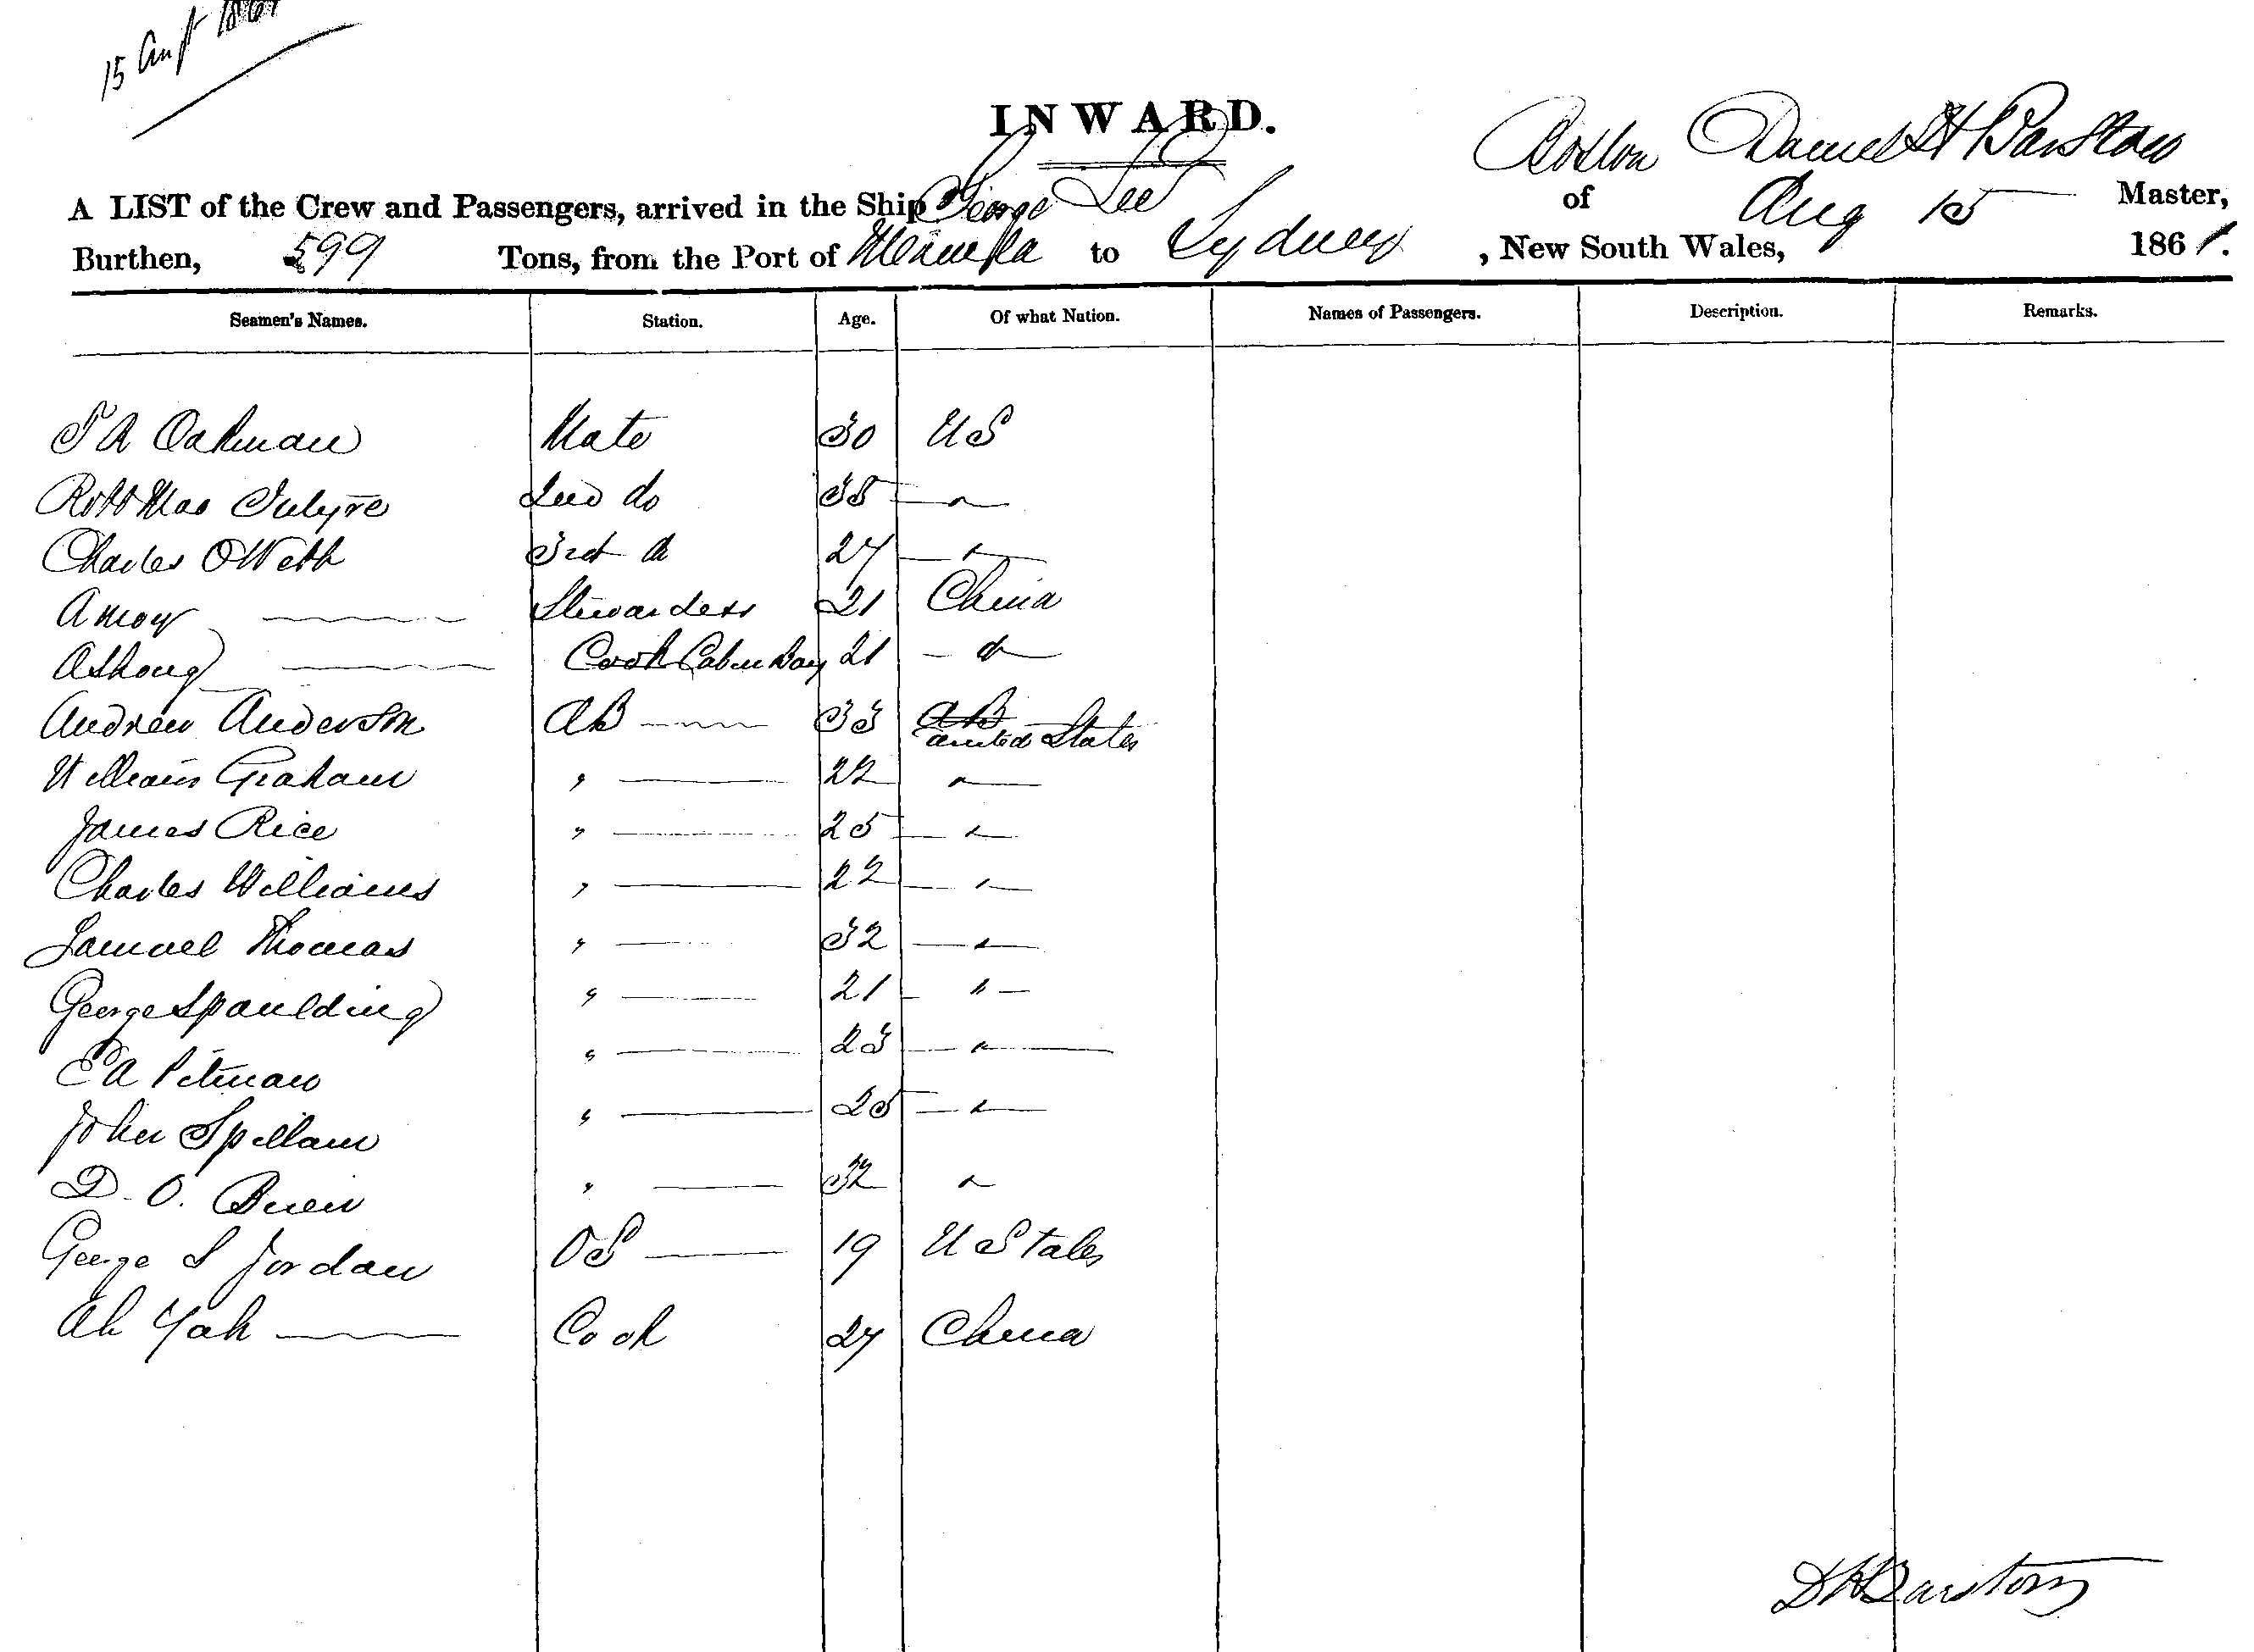 15 Augt 1861
INWARD.
Boston Daniel H Barstow
A LIST of the Crew and Passengers, arrived in the Ship George Lee of Aug 15 Master,
Burthen, 599 Tons, from the Port of to Sydney , New South Wales, 1861.
Seamen's Names. Station. Age. Of what Nation. Names of Passengers. Description. Remarks.
T A Oakman Mate 30 US
Robt Mac Intyre do 35 "
Charles O Webb 3rd do 27 "
Amoy Stewardess 21 China
Ashong Cook Cabin Boy 21 - do
Andrew Anderson AB 33 AB
United States
William Graham " 22 "
James Rice " 25 "
Charles Williams " 22 "
Samuel Thomas " 32 "
George Spaulding " 21 "
E A Pitman " 23 "
John Spillane " 25 "
D. O. Brien " 32 "
George S Jordan OS 19 U States
Ah Yah Cook 27 China
D H Barstow